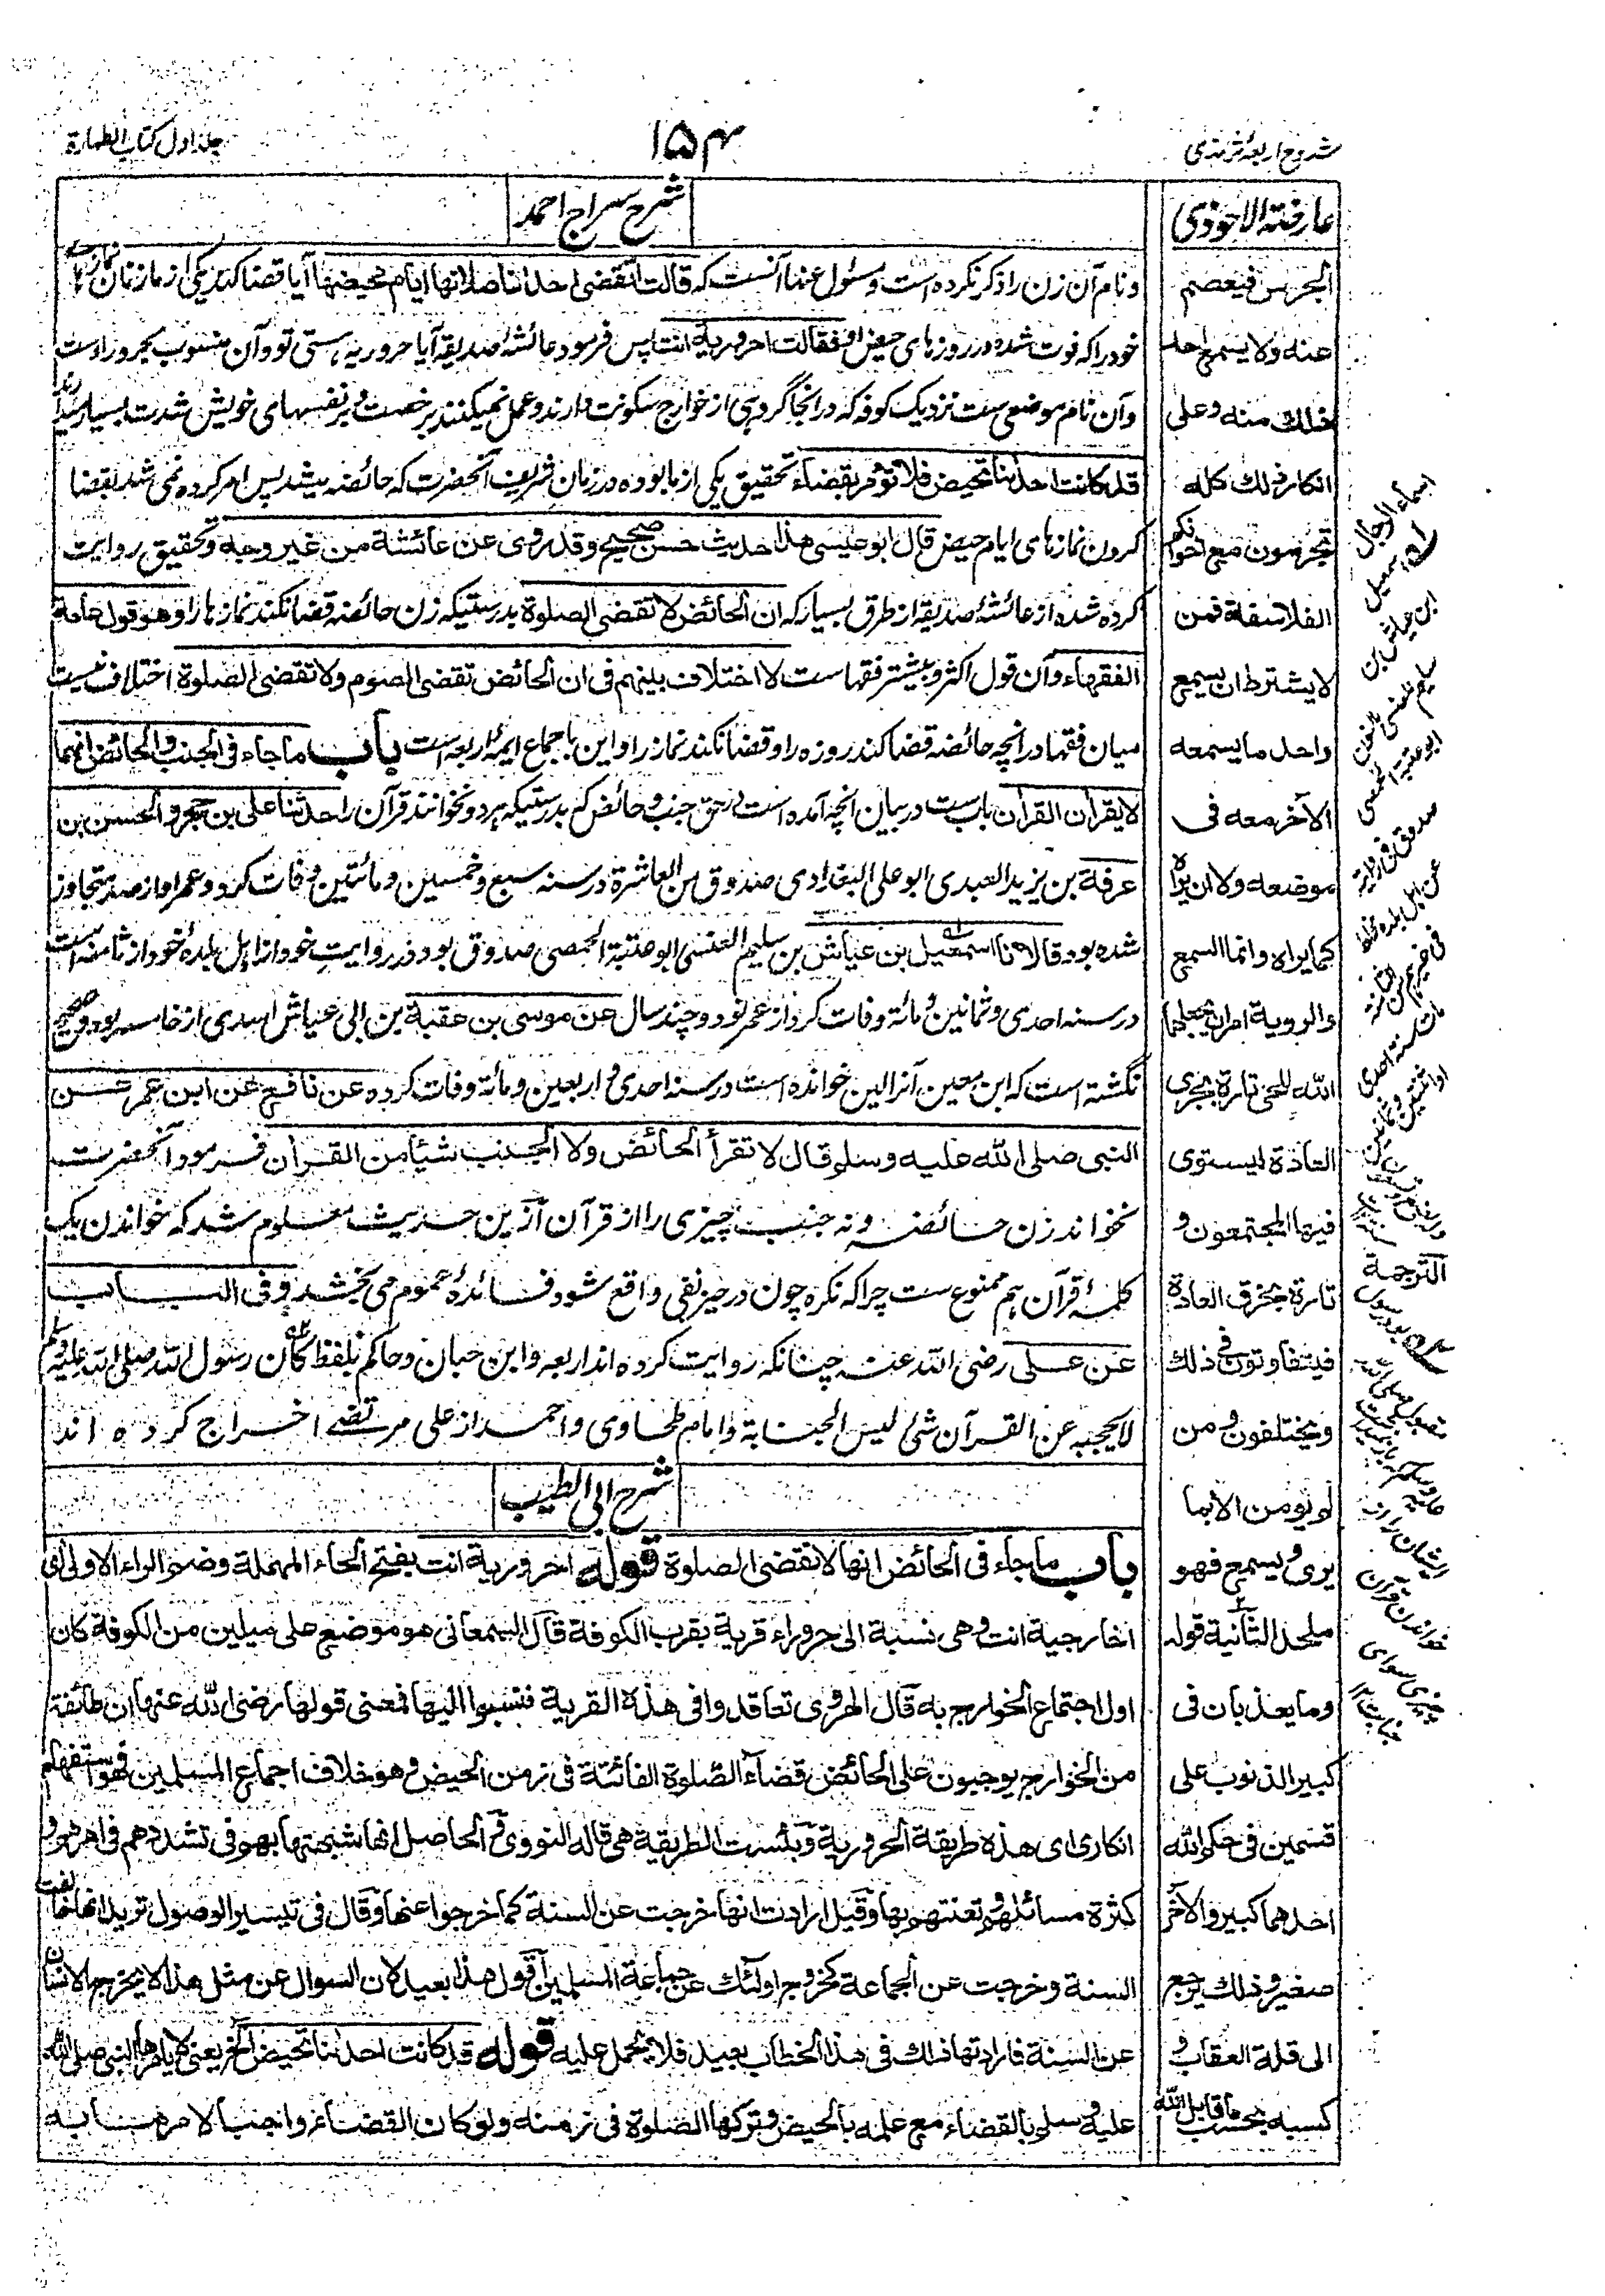 شروح اربعه ترمذی
۱۵۴
جلد اول کتاب الطهارة
عارضة الاحوذی
الجرس فیفصم
عنه ولا یسمع احد
ذلك منه وعلی
انکار ذلك کله
تجرسون مع اخوانکم
الفلاسفة فمن
لا یشترط ان یسمع
واحد ما یسمعه
الآخر معه فی
موضعه ولا ان یراه
کما یراه وانما السمع
والرویة امران یجعلهما
الله للحی تارة بمجری
العادة لیستوی
فیها المجتمعون و
تارة بخرق العادة
فیتفاوتون فی ذلك
ویختلفون ومن
لم یؤمن الا بما
یری ویسمع فهو
ملحد الثانیة قوله
وما یعذبان فی
کبیر الذنوب علی
قسمین فی حکم الله
احدهما کبیر والآخر
صغیر وذلك یرجع
الی قلة العقاب و
کسبه بحسب ما قابل الله
شرح سراج احمد
ونام آن زن را ذکر نکرده است ومسئول عنها آنست که قالت اتقضی احدانا صلاتها ایام محیضها آیا قضا کند یکی از ما زنان نمازهای
خود را که فوت شده در روزهای حیض او فقالت احروریة انت پس فرمود عائشه صدیقه آیا حروریه هستی تو وآن منسوب بحروراست
وآن نام موضعی ست نزدیک کوفه که در آنجا گروهی از خوارج سکونت دارند وعمل نمیکنند برخصت وبر نفسهامی خویش شدت بسیار دارند
قد کانت احدانا تحیض فلا تؤمر بقضاء تحقیق یکی از ما بوده در زمان شریف آنحضرت که حائضه میشد پس امر کرده نمی شد بقضا
کردن نمازهای ایام حیض قال ابو عیسی هذا حدیث حسن صحیح وقد روی عن عائشة من غیر وجه وتحقیق روایت
کرده شده از عائشه صدیقه از طرق بسیار که ان الحائض لا تقضی الصلوة بدرستیکه زن حائضه قضا نکند نمازها را وهو قول عامة
الفقهاء وآن قول اکثر وبیشتر فقهاست لا اختلاف بینهم فی ان الحائض تقضی الصوم ولا تقضی الصلوة اختلاف نیست
میان فقها در آنچه حائضه قضا کند روزه را وقضا نکند نماز را واین باجماع ایمهٔ اربعه است باب ما جاء فی الجنب والحائض انهما
لا یقرأن القرآن باب ست در بیان آنچه آمده است در حق جنب وحائض که بدرستیکه هر دو نخوانند قرآن را حدثنا علی بن حجر والحسن بن
عرفة بن یزید العبدی ابو علی البغدادی صدوق من العاشرة در سنه سبع وخمسین ومائتین وفات کرد وعمر او از صد متجاوز
شده بود قالا نا اسمعیل بن عیاش بن سلیم العنسی ابو عتبة الحمصی صدوق بود در روایت خود از اهل بلدهٔ خود از ثامنه است
در سنه احدی وثمانین ومائة وفات کرد از عمر نود وچند سال عن موسی بن عقبة بن ابی عیاش اسدی از خامسه بود وصحیح
نگشته است که ابن معین آنرا لین خوانده است در سنه احدی واربعین ومائة وفات کرده عن نافع عن ابن عمر عن
النبی صلی الله علیه وسلم قال لا تقرأ الحائض ولا الجنب شیأ من القرآن فرمود آنحضرت
نخواند زن حائضه ونه جنب چیزی را از قرآن از این حدیث معلوم شد که خواندن یک
کلمهٔ قرآن هم ممنوع ست چرا که نکره چون در حیز نفی واقع شود فائدهٔ عموم می بخشد وفی الباب
عن علی رضی الله عنه چنانکه روایت کرده اند اربعه وابن حبان وحاکم بلفظ کان رسول الله صلی الله علیه وسلم
لا یحجبه عن القرآن شئ لیس الجنابة وامام طحاوی واحمد از علی مرتضی اخراج کرده اند
شرح ابی الطیب
باب ما جاء فی الحائض انها لا تقضی الصلوة قوله احروریة انت بفتح الحاء المهملة وضم الراء الاولی ای
اخارجیة انت وهی نسبة الی حروراء قریة بقرب الکوفة قال السمعانی هو موضع علی میلین من الکوفة کان
اول اجتماع الخوارج به قال الهروی تعاقدوا فی هذه القریة فنسبوا الیها فمعنی قولها رضی الله عنها ان طائفة
من الخوارج یوجبون علی الحائض قضاء الصلوة الفائتة فی زمن الحیض وهو خلاف اجماع المسلمین فهو استفهام
انکاری ای هذه طریقة الحروریة وبئست الطریقة هی قاله النووی والحاصل انها شبهتها بهم فی تشددهم فی امرهم و
کثرة مسائلهم وتعنتهم بها وقیل ارادت انها خرجت عن السنة کما خرجوا عنها وقال فی تیسیر الوصول ترید انها خالفت
السنة وخرجت عن الجماعة کخروج اولئك عن جماعة المسلمین اقول هذا بعید لان السوال عن مثل هذا لا یخرج الانسان
عن السنة فارادتها ذلك فی هذا الخطاب بعید فلا یحمل علیه قوله قد کانت احدانا تحیض الخ یعنی لا یامرها النبی صلی الله
علیه وسلم بالقضاء مع علمه بالحیض وترکها الصلوة فی زمنه ولو کان القضاء واجبا لامرهن به
اسماء الرجال
اسمعیل
ابن عیاش بن
سلیم عنسی بالنون
ابو عتبة الحمصی
صدوق فی روایته
عن اهل بلده مخلط
فی غیرهم من الثامنة
مات سنة احدی
او اثنتین وثمانین
الترجمة